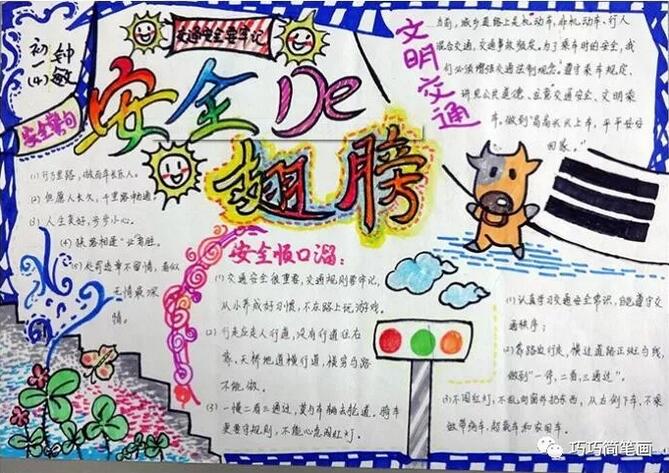 初一(4)
钟敏
交通安全要牢记
安全De
翅膀
文明交通
当前,城乡道路上是机动车、非机动车、行人
混合交通,交通事故频发。为了乘车时的安全,我
们必须增强交通法制观念。遵守乘车规定、
讲究公共道德、注意交通安全、文明乘
车,做到“高高兴兴上车,平平安安
回家。”
安全警句
(1) 行万里路,
(2) 但愿人长久,千里路畅通。
(3) 人生美好,步步小心。
(4) 狭路相逢“让”者胜。
(5) 处罚违章不留情,看似
无情最深
情。
安全顺口溜:
(1) 交通安全很重要,交通规则要牢记,
从小养成好习惯,不在路上玩游戏。
(2) 行走应走人行道,没有行道往右
靠、天桥地道横行道,横穿马路
不能做。
(3) 一慢二看三通过,莫与车辆去抢道。骑车
更要守规则,不能心急闯红灯。
(1) 认真学习交通安全常识,自觉遵守交
通秩序;
(2) 靠路边行走,横过道路走斑马线,
做到“一停,二看,三通过”。
(3) 不闯红灯,不乱向窗外扔东西,从右侧下车,不乘
做带病车,超载车和农用车。
巧巧简笔画